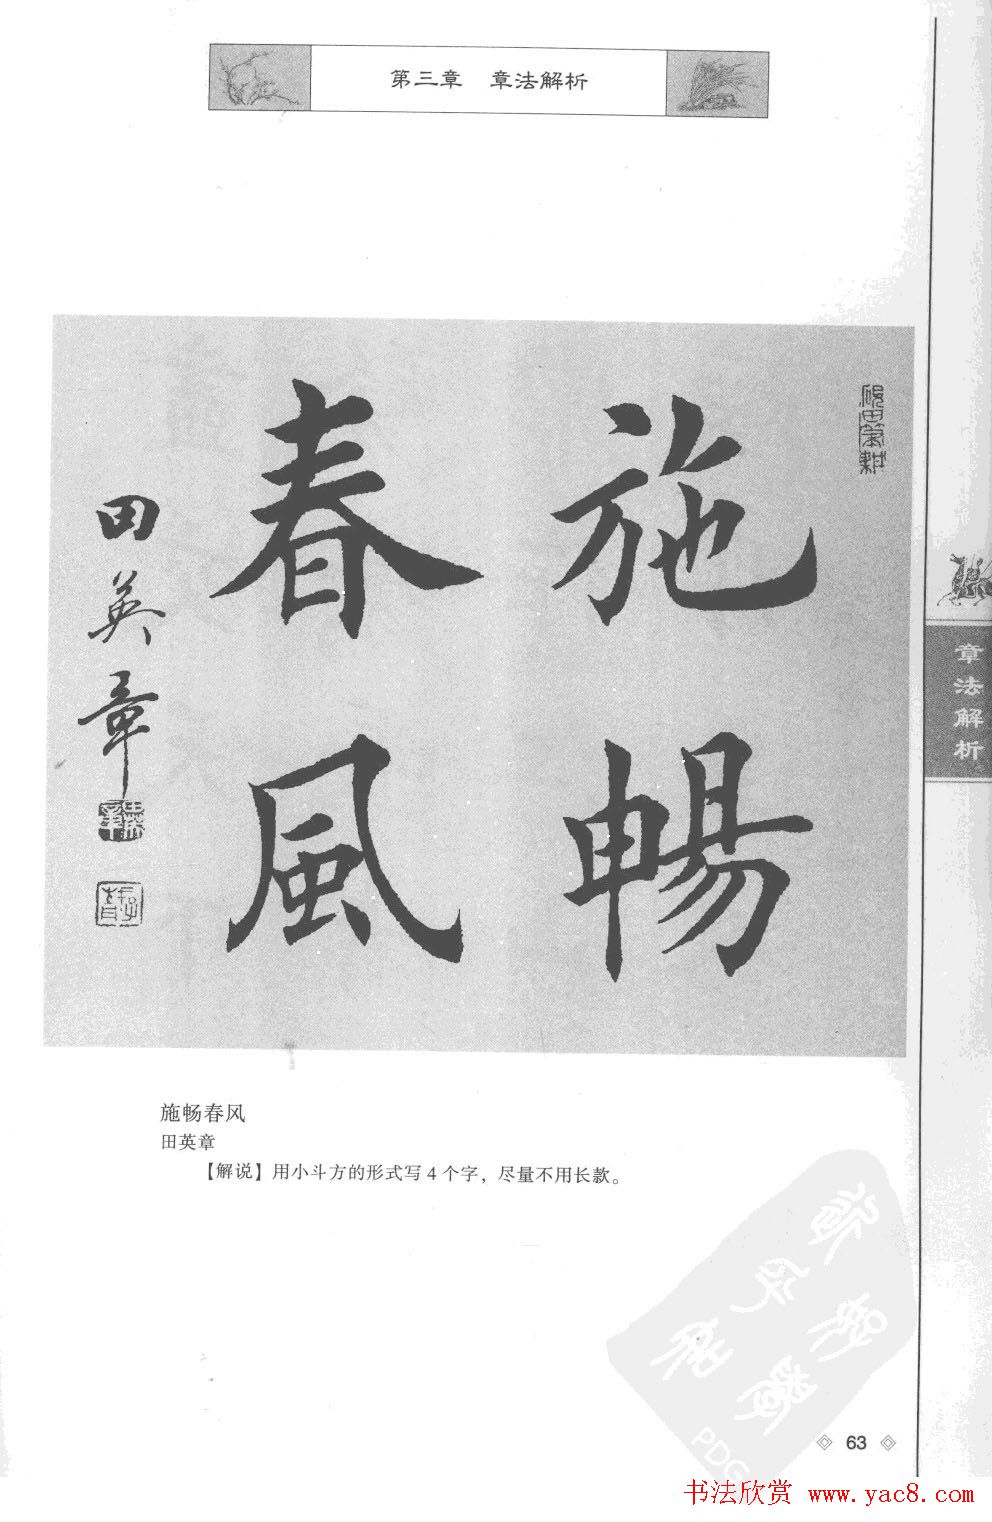 第三章 章法解析
施暢
春風
田英章
章法解析
施畅春风
田英章
【解说】用小斗方的形式写4个字，尽量不用长款。
63
PDG
书法欣赏 www.yac8.com